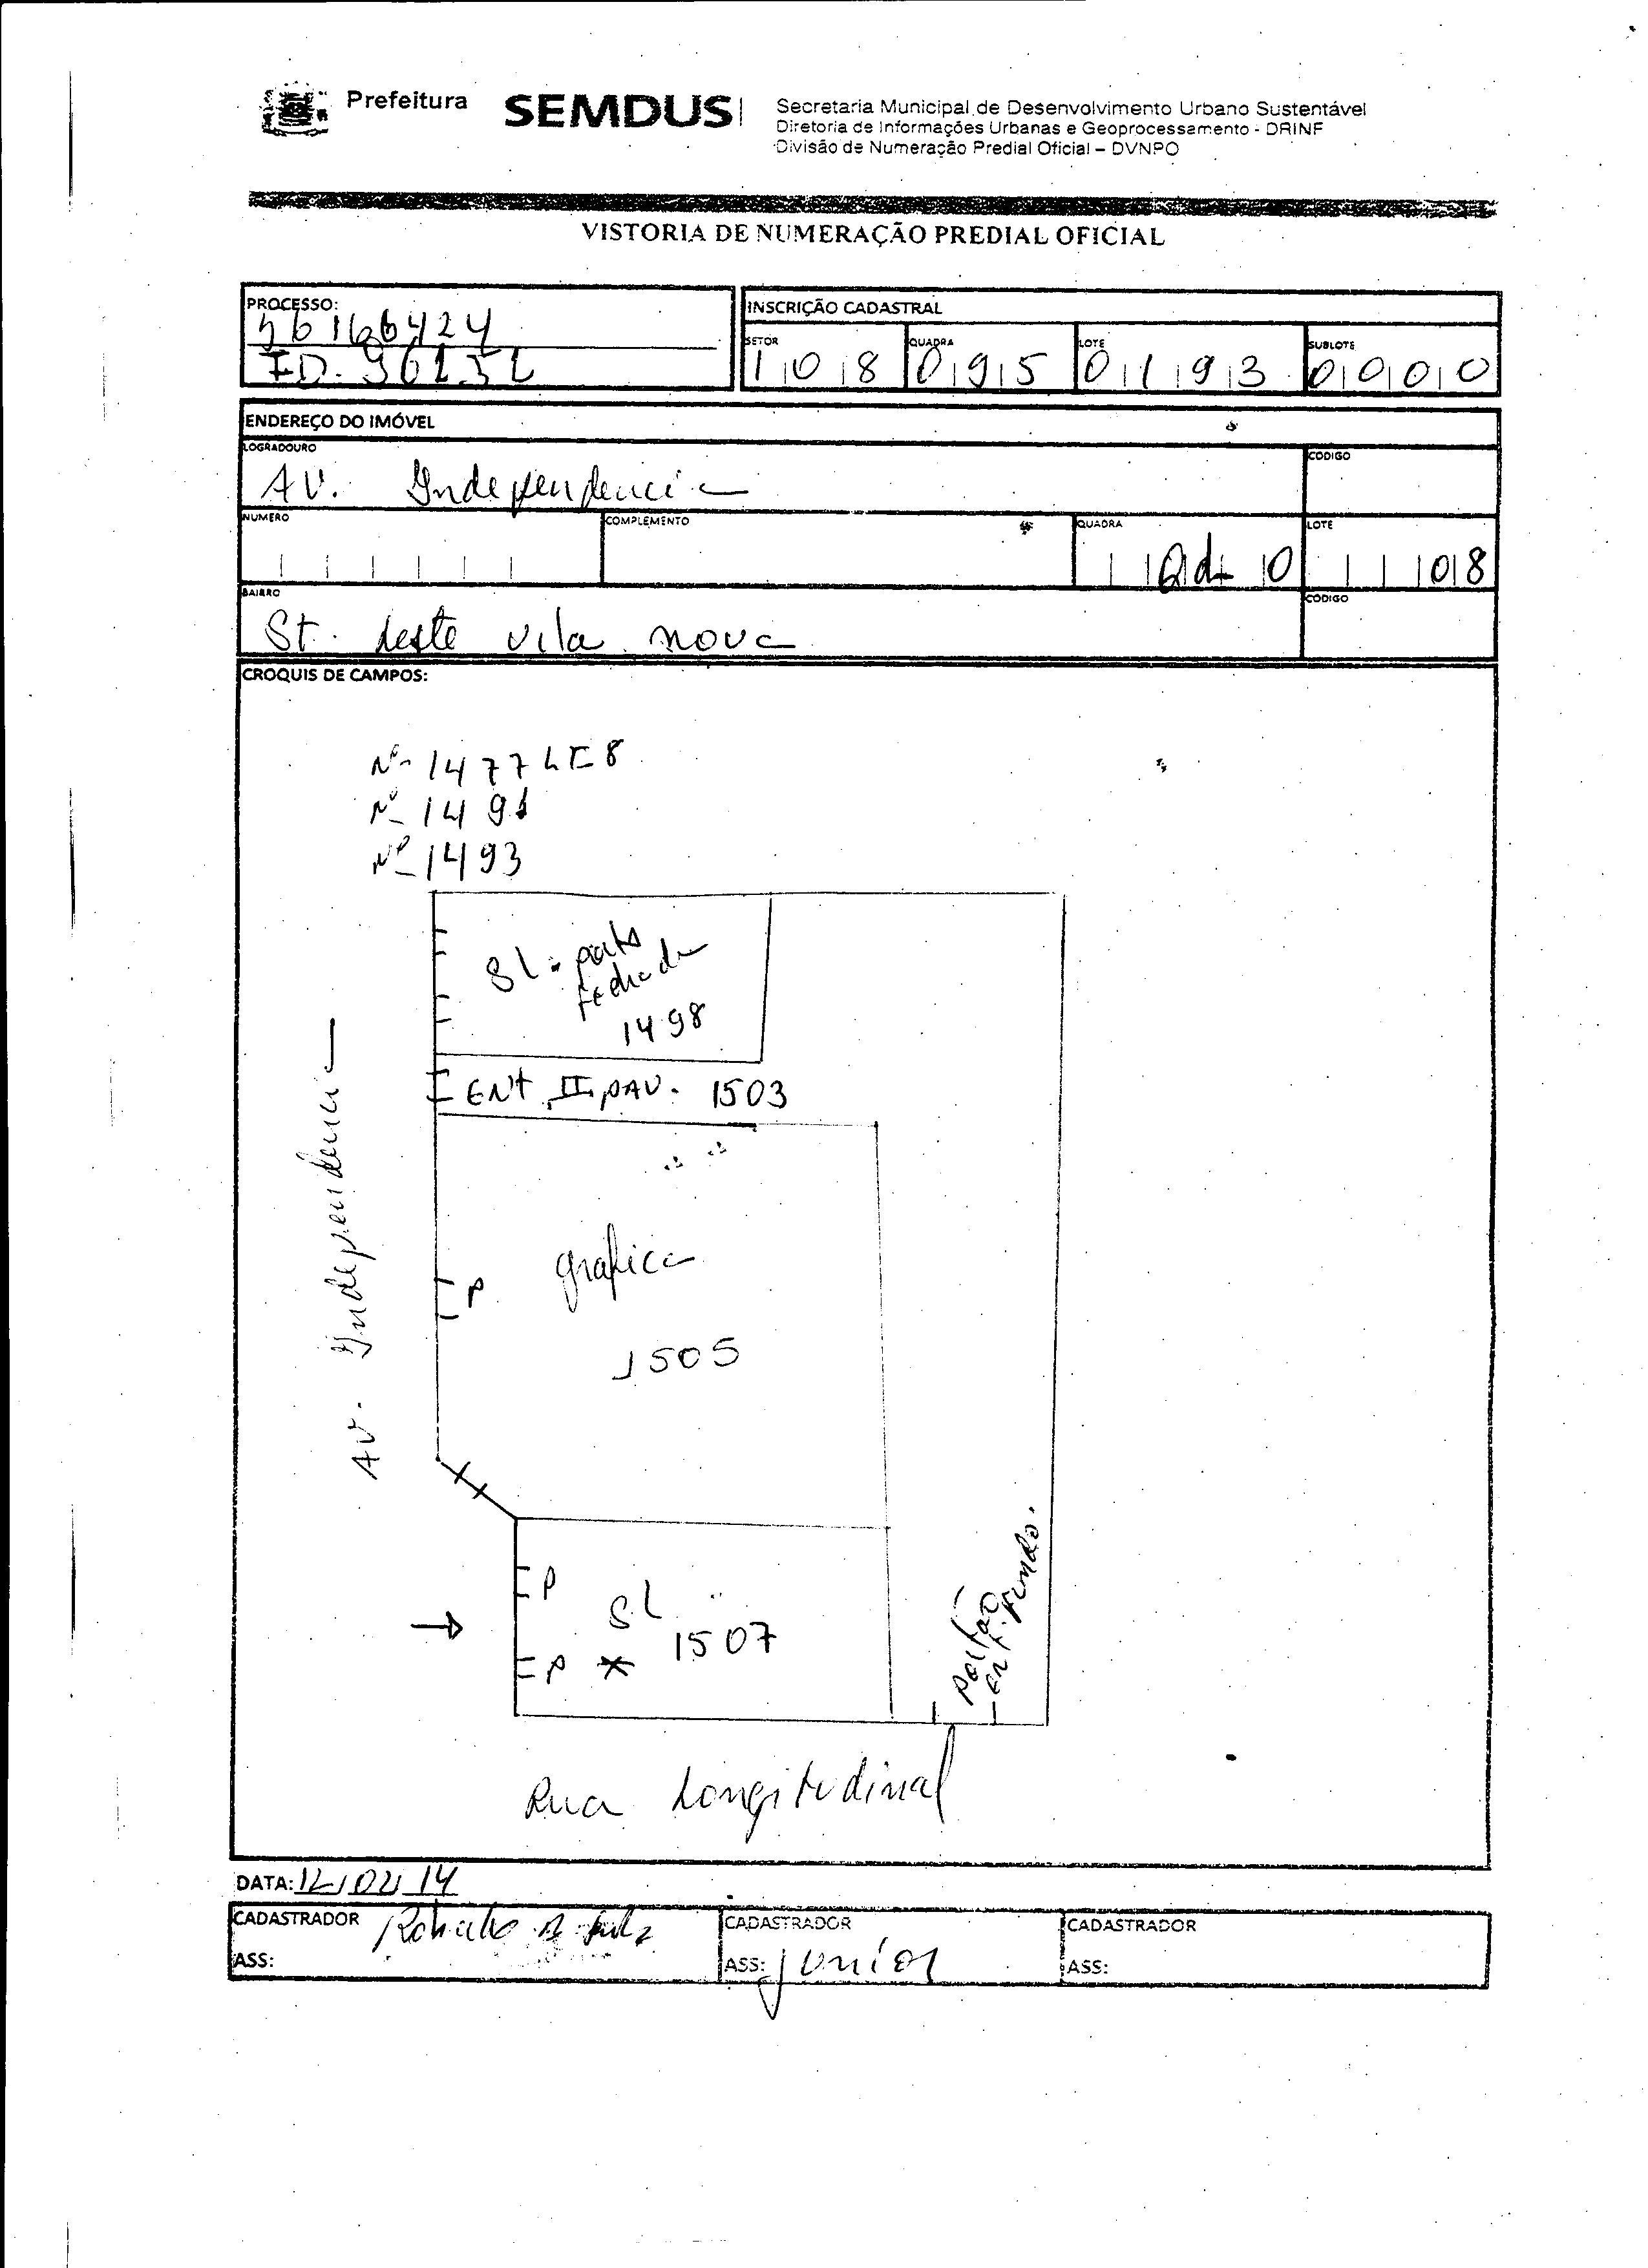 Prefeitura SEMDUS
Secretaria Municipal de Desenvolvimento Urbano Sustentável
Diretoria de Informações Urbanas e Geoprocessamento - DRINF
Divisão de Numeração Predial Oficial – DVNPO
VISTORIA DE NUMERAÇÃO PREDIAL OFICIAL
PROCESSO:
56166424
ID. 96252
INSCRIÇÃO CADASTRAL
SETOR 108 QUADRA 095 LOTE 0193 SUBLOTE 0000
ENDEREÇO DO IMÓVEL
LOGRADOURO CODIGO
AV. Independencia
NUMERO COMPLEMENTO QUADRA LOTE
Qd 0 08
BAIRRO CODIGO
St. Leste vila nova
CROQUIS DE CAMPOS:
Nº 1477 LT 8
Nº 1491
Nº 1493
Sl. porta
fechada
1498
ENT II PAV. 1503
AV. Independencia
grafica
P
1505
P
Sl
1507
P
Portão
ent. Fundo.
Rua Longitudinal
DATA: 12/02/14
CADASTRADOR CADASTRADOR CADASTRADOR
ASS: ASS: Junior ASS: